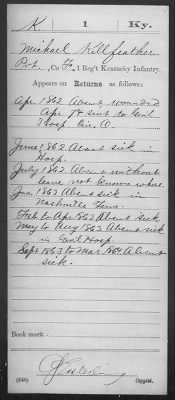 K. 1 Ky.
Michael Killfeather
Pvt., Co. F, 1 Reg't Kentucky Infantry.
Appears on Returns as follows:
Apr 1862 Absent wounded
Apr 7 sent to Genl
Hosp. Cin. O.
June 1862 Absent sick in
Hosp.
July 1862. Absent without
leave not known where.
Jan 1863 Absent sick in
Nashville Tenn.
Feb to Apr 1863 Absent sick
May to Aug 1863 Absent sick
in Genl Hosp.
Sept 1863 to Mar. 1864 Absent
sick.
Book mark:
(546) Copyist.